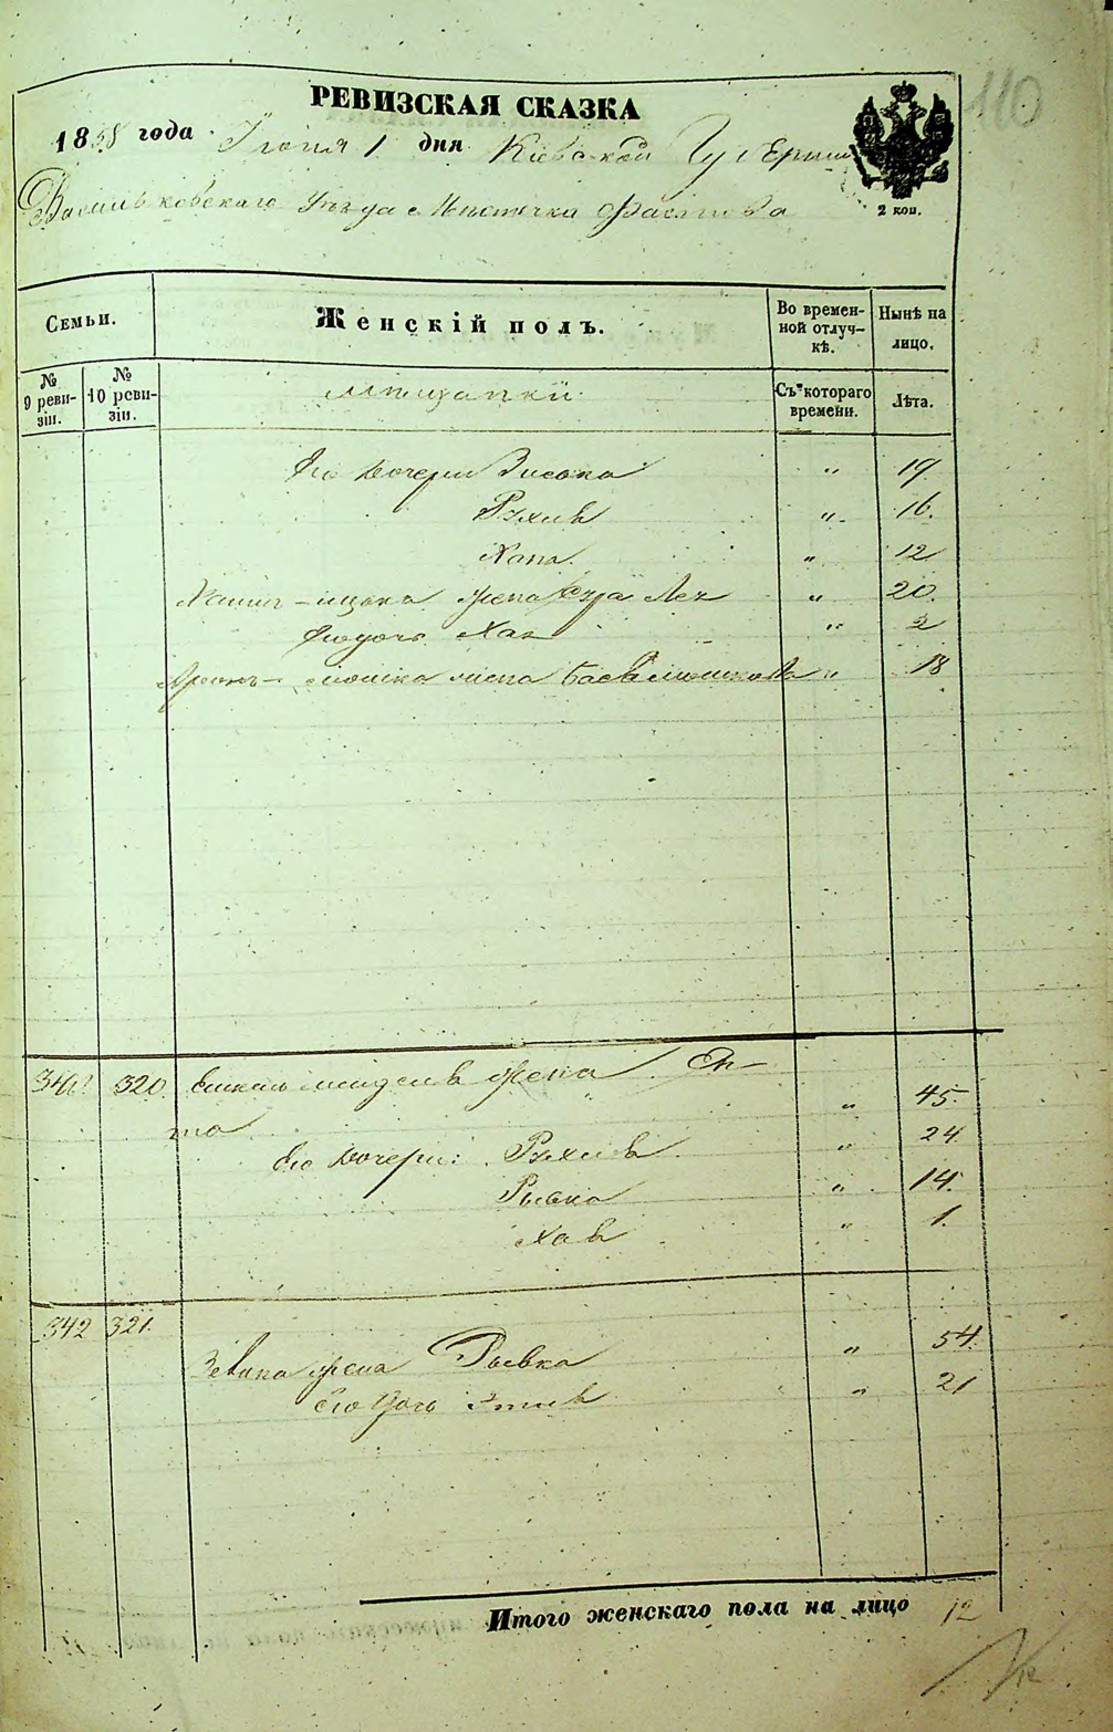 110
РЕВИЗСКАЯ СКАЗКА
1858 года Іюня 1 дня Кіевской Губерніи
Васильковскаго Уѣзда Мѣстечка Фастова
2 коп.
Семьи.
Женскій полъ.
Во времен-
ной отлуч-
кѣ.
Нынѣ на
лицо.
№
9 реви-
зіи.
№
10 реви-
зіи.
Мѣщанки
Съ котораго
времени.
Лѣта.
Его дочери " 19.
Рухля " 16.
Хана. " 12
Хаимъ-ицка жена Лея " 20.
Его дочь Хая " 2
Аронъ-мошка жена Бася " 18
320. жена Эн-
та " 45.
Его дочери: Рухля " 24
Рывка " 14.
Хая " 1.
342 321.
жена Рывка " 54.
Его дочь " 21
Итого женскаго пола на лицо 12